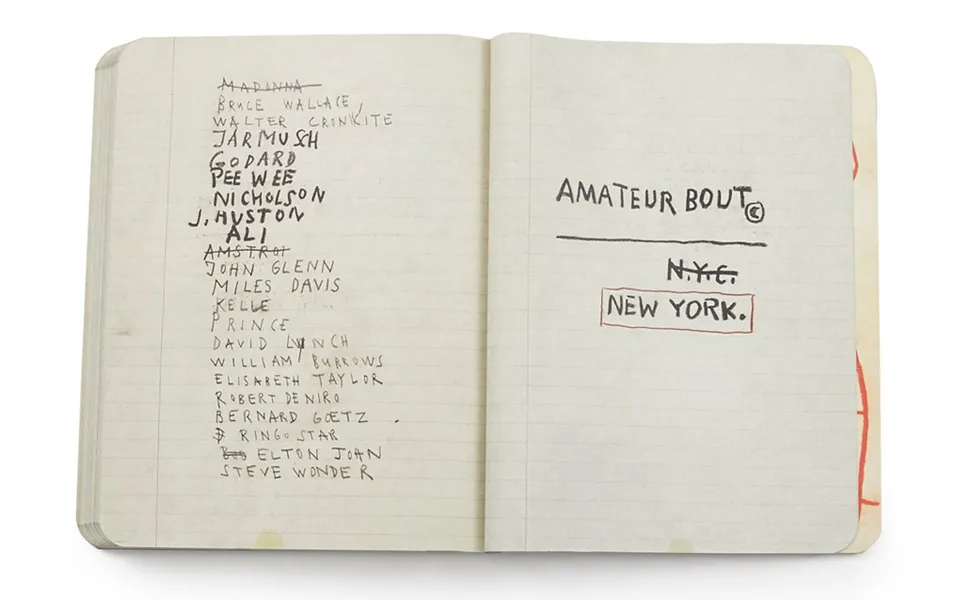 MADONNA
BRUCE WALLACE,
WALTER CRONKITE
JARMUSH
GODARD
PEE WEE
NICHOLSON
J. HUSTON
ALI
AMSTROT
JOHN GLENN
MILES DAVIS
KELLE
PRINCE
DAVID LYNCH
WILLIAM BURROWS
ELISABETH TAYLOR
ROBERT DENIRO
BERNARD GOETZ .
RINGO STAR
ELTON JOHN
STEVE WONDER
AMATEUR BOUT©
N.Y.C.
NEW YORK.